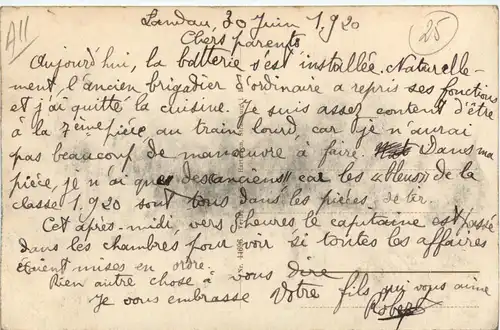 All
25
Landau, 30 Juin 1.920
Chers parents
Aujourd'hui, la batterie s'est installée. Naturelle-
ment, l'ancien brigadier d'ordinaire a repris ses fonctions
et j'ai quitté la cuisine. Je suis assez content d'être
à la 7ème pièce au train lourd, car je n'aurai
pas beaucoup de manœuvre à faire. Dans ma
pièce, je n'ai que des "anciens" car les "bleus" de la
classe 1.920 sont tous dans les pièces de tir.
Cet après-midi, vers heures le capitaine est passé
dans les chambres pour voir si toutes les affaires
étaient mises en ordre.
Rien autre chose à vous dire
Votre fils qui vous aime
Je vous embrasse
Robert